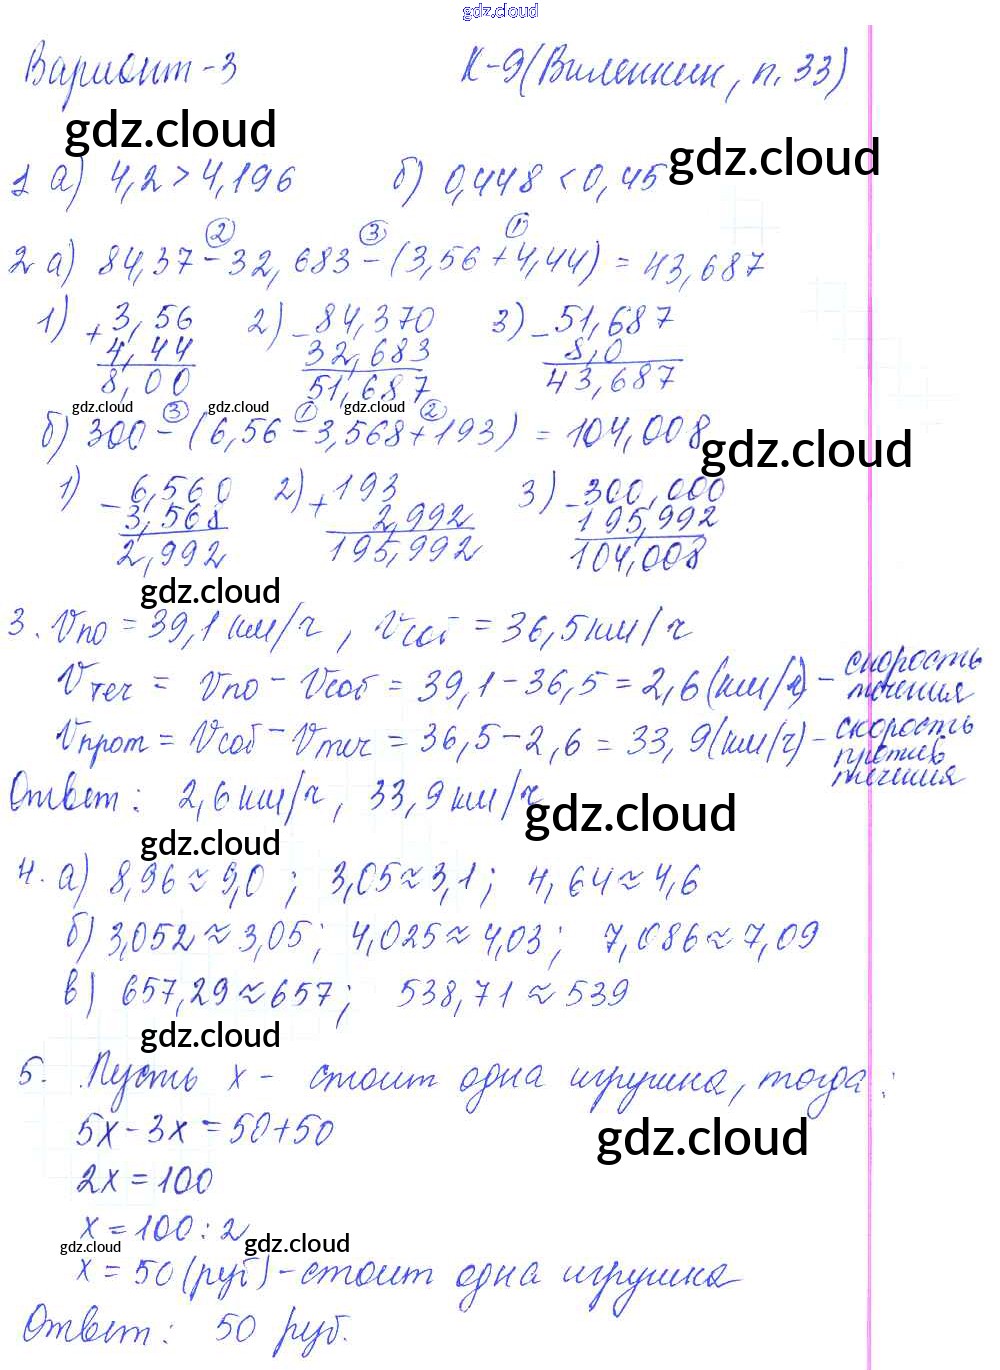 gdz.cloud
Вариант-3 К-9(Виленкин, п. 33)
gdz.cloud gdz.cloud
1 а) 4,2 > 4,196 б) 0,448 < 0,45
② ③ ①
2 а) 84,37 - 32,683 - (3,56 + 4,44) = 43,687
1) + 3,56 2) - 84,370 3) - 51,687
4,44 32,683 8,0
8,00 51,687 43,687
gdz.cloud gdz.cloud gdz.cloud
③ ① ②
б) 300 - (6,56 - 3,568 + 193) = 104,008
gdz.cloud
1) - 6,560 2) + 193 3) - 300,000
3,568 2,992 195,992
2,992 195,992 104,008
gdz.cloud
3. Vпо = 39,1 км/ч, Vсоб = 36,5 км/ч
Vтеч = Vпо - Vсоб = 39,1 - 36,5 = 2,6 (км/ч) - скорость
течения
Vпрот = Vсоб - Vтеч = 36,5 - 2,6 = 33,9 (км/ч) - скорость
против
течения
Ответ: 2,6 км/ч, 33,9 км/ч
gdz.cloud
gdz.cloud
4. а) 8,96 ≈ 9,0 ; 3,05 ≈ 3,1 ; 4,64 ≈ 4,6
б) 3,052 ≈ 3,05 ; 4,025 ≈ 4,03 ; 7,086 ≈ 7,09
в) 657,29 ≈ 657 ; 538,71 ≈ 539
gdz.cloud
5. Пусть х - стоит одна игрушка, тогда:
5х - 3х = 50 + 50
gdz.cloud
2х = 100
х = 100 : 2
gdz.cloud gdz.cloud
х = 50 (руб) - стоит одна игрушка
Ответ: 50 руб.